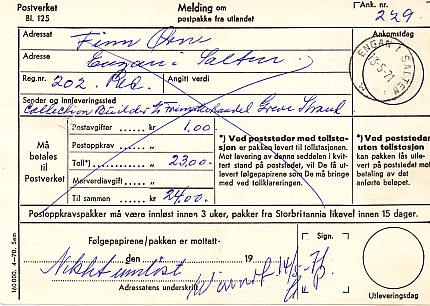 Postverket
Bl. 125
Melding om
postpakke fra utlandet
Ank. nr.
229.
Adressat
Finn Osne
Ankomstdag
Adresse
Engan i Salten
ENGAN I SALTEN
13-5-71
Reg.nr.
202. Pkg.
Angitt verdi
Sender og innleveringssted
Collection Builder Frimerkehandel Greve Strand
Postavgifter ...... kr
1,00
Postoppkrav ..... „
Toll*) ............... „
23,00.
Merverdiavgift .... „
Til sammen ...... kr
24,00.
Må
betales
til
Postverket
*) Ved poststeder med tollstasjon
er pakken levert til tollstasjonen.
Mot levering av denne seddelen i kvittert
stand på poststedet, vil De få utlevert
følgepapirene som De må bringe
med ved tollklareringen.
*) Ved poststeder
uten tollstasjon
kan pakken fås utlevert
på poststedet mot
betaling av det
anførte beløpet.
Postoppkravspakker må være innløst innen 3 uker, pakker fra Storbritannia likevel innen 15 dager.
Følgepapirene/pakken er mottatt
Sign.
den
19
Nikht innløst
14/6-71
Adressatens underskrift
Utleveringsdag
160 000. 4–70. Sem